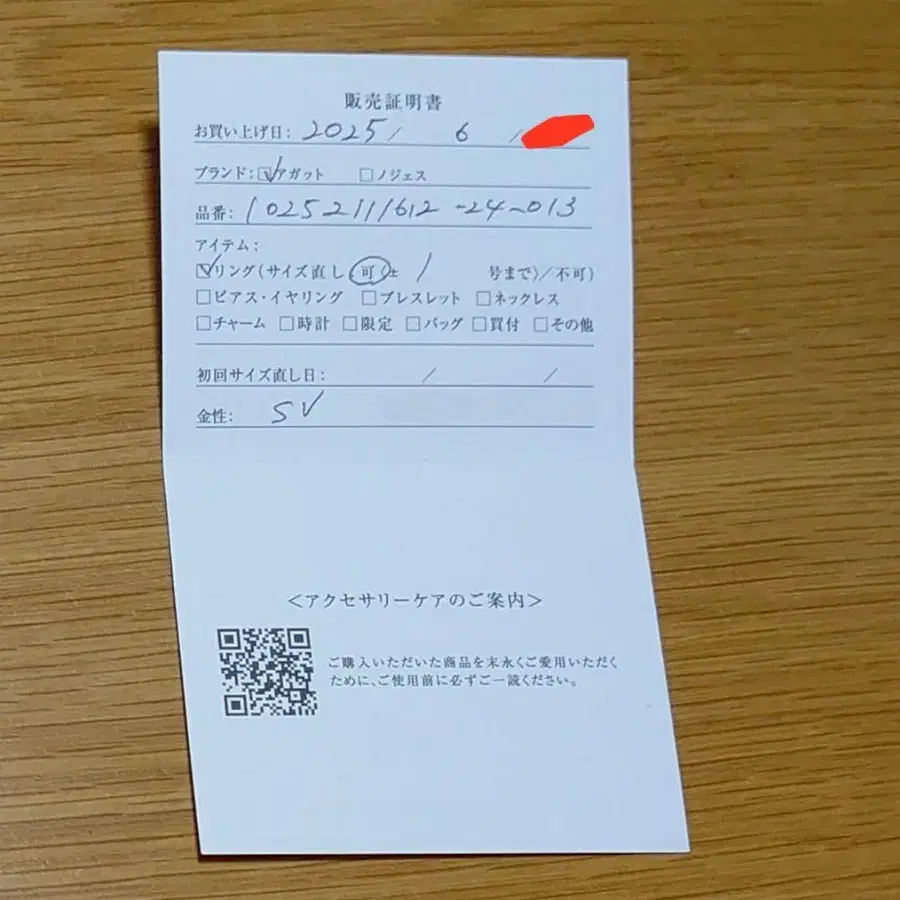 販売証明書
お買い上げ日: 2025 / 6 /
ブランド: ☑アガット □ノジェス
品番: 10252111612-24-013
アイテム:
☑リング(サイズ直し 可(± 1 号まで)/不可)
□ピアス・イヤリング □ブレスレット □ネックレス
□チャーム □時計 □限定 □バッグ □買付 □その他
初回サイズ直し日: / /
金性: SV
<アクセサリーケアのご案内>
ご購入いただいた商品を末永くご愛用いただく
ために、ご使用前に必ずご一読ください。